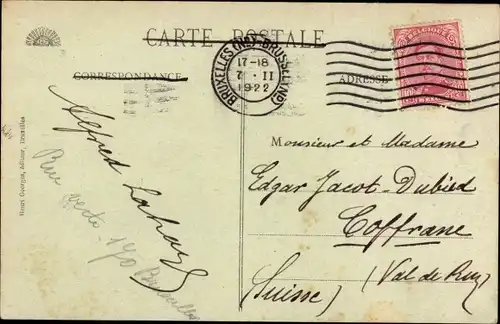 CARTE POSTALE
CORRESPONDANCE
ADRESSE
BRUXELLES (Nd)-BRUSSEL (Nd)
17-18
7 · II
1922
BELGIQUE
Monsieur et Madame
Edgar Jacot-Dubied
Coffrane
(Val de Ruz)
(Suisse)
Alfred
Rue verte 170 Bruxelles
Henri Georges, éditeur, Bruxelles